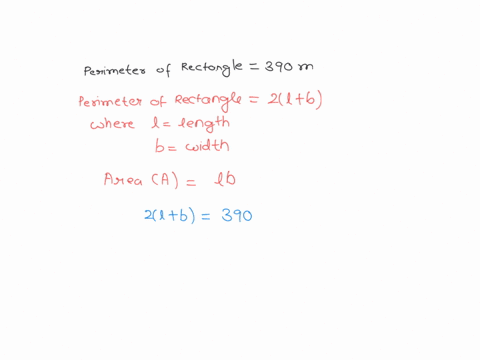 Perimeter of Rectangle = 390 m
Perimeter of Rectangle = 2(l+b)
where l = length
b = width
Area (A) = lb
2(l+b) = 390